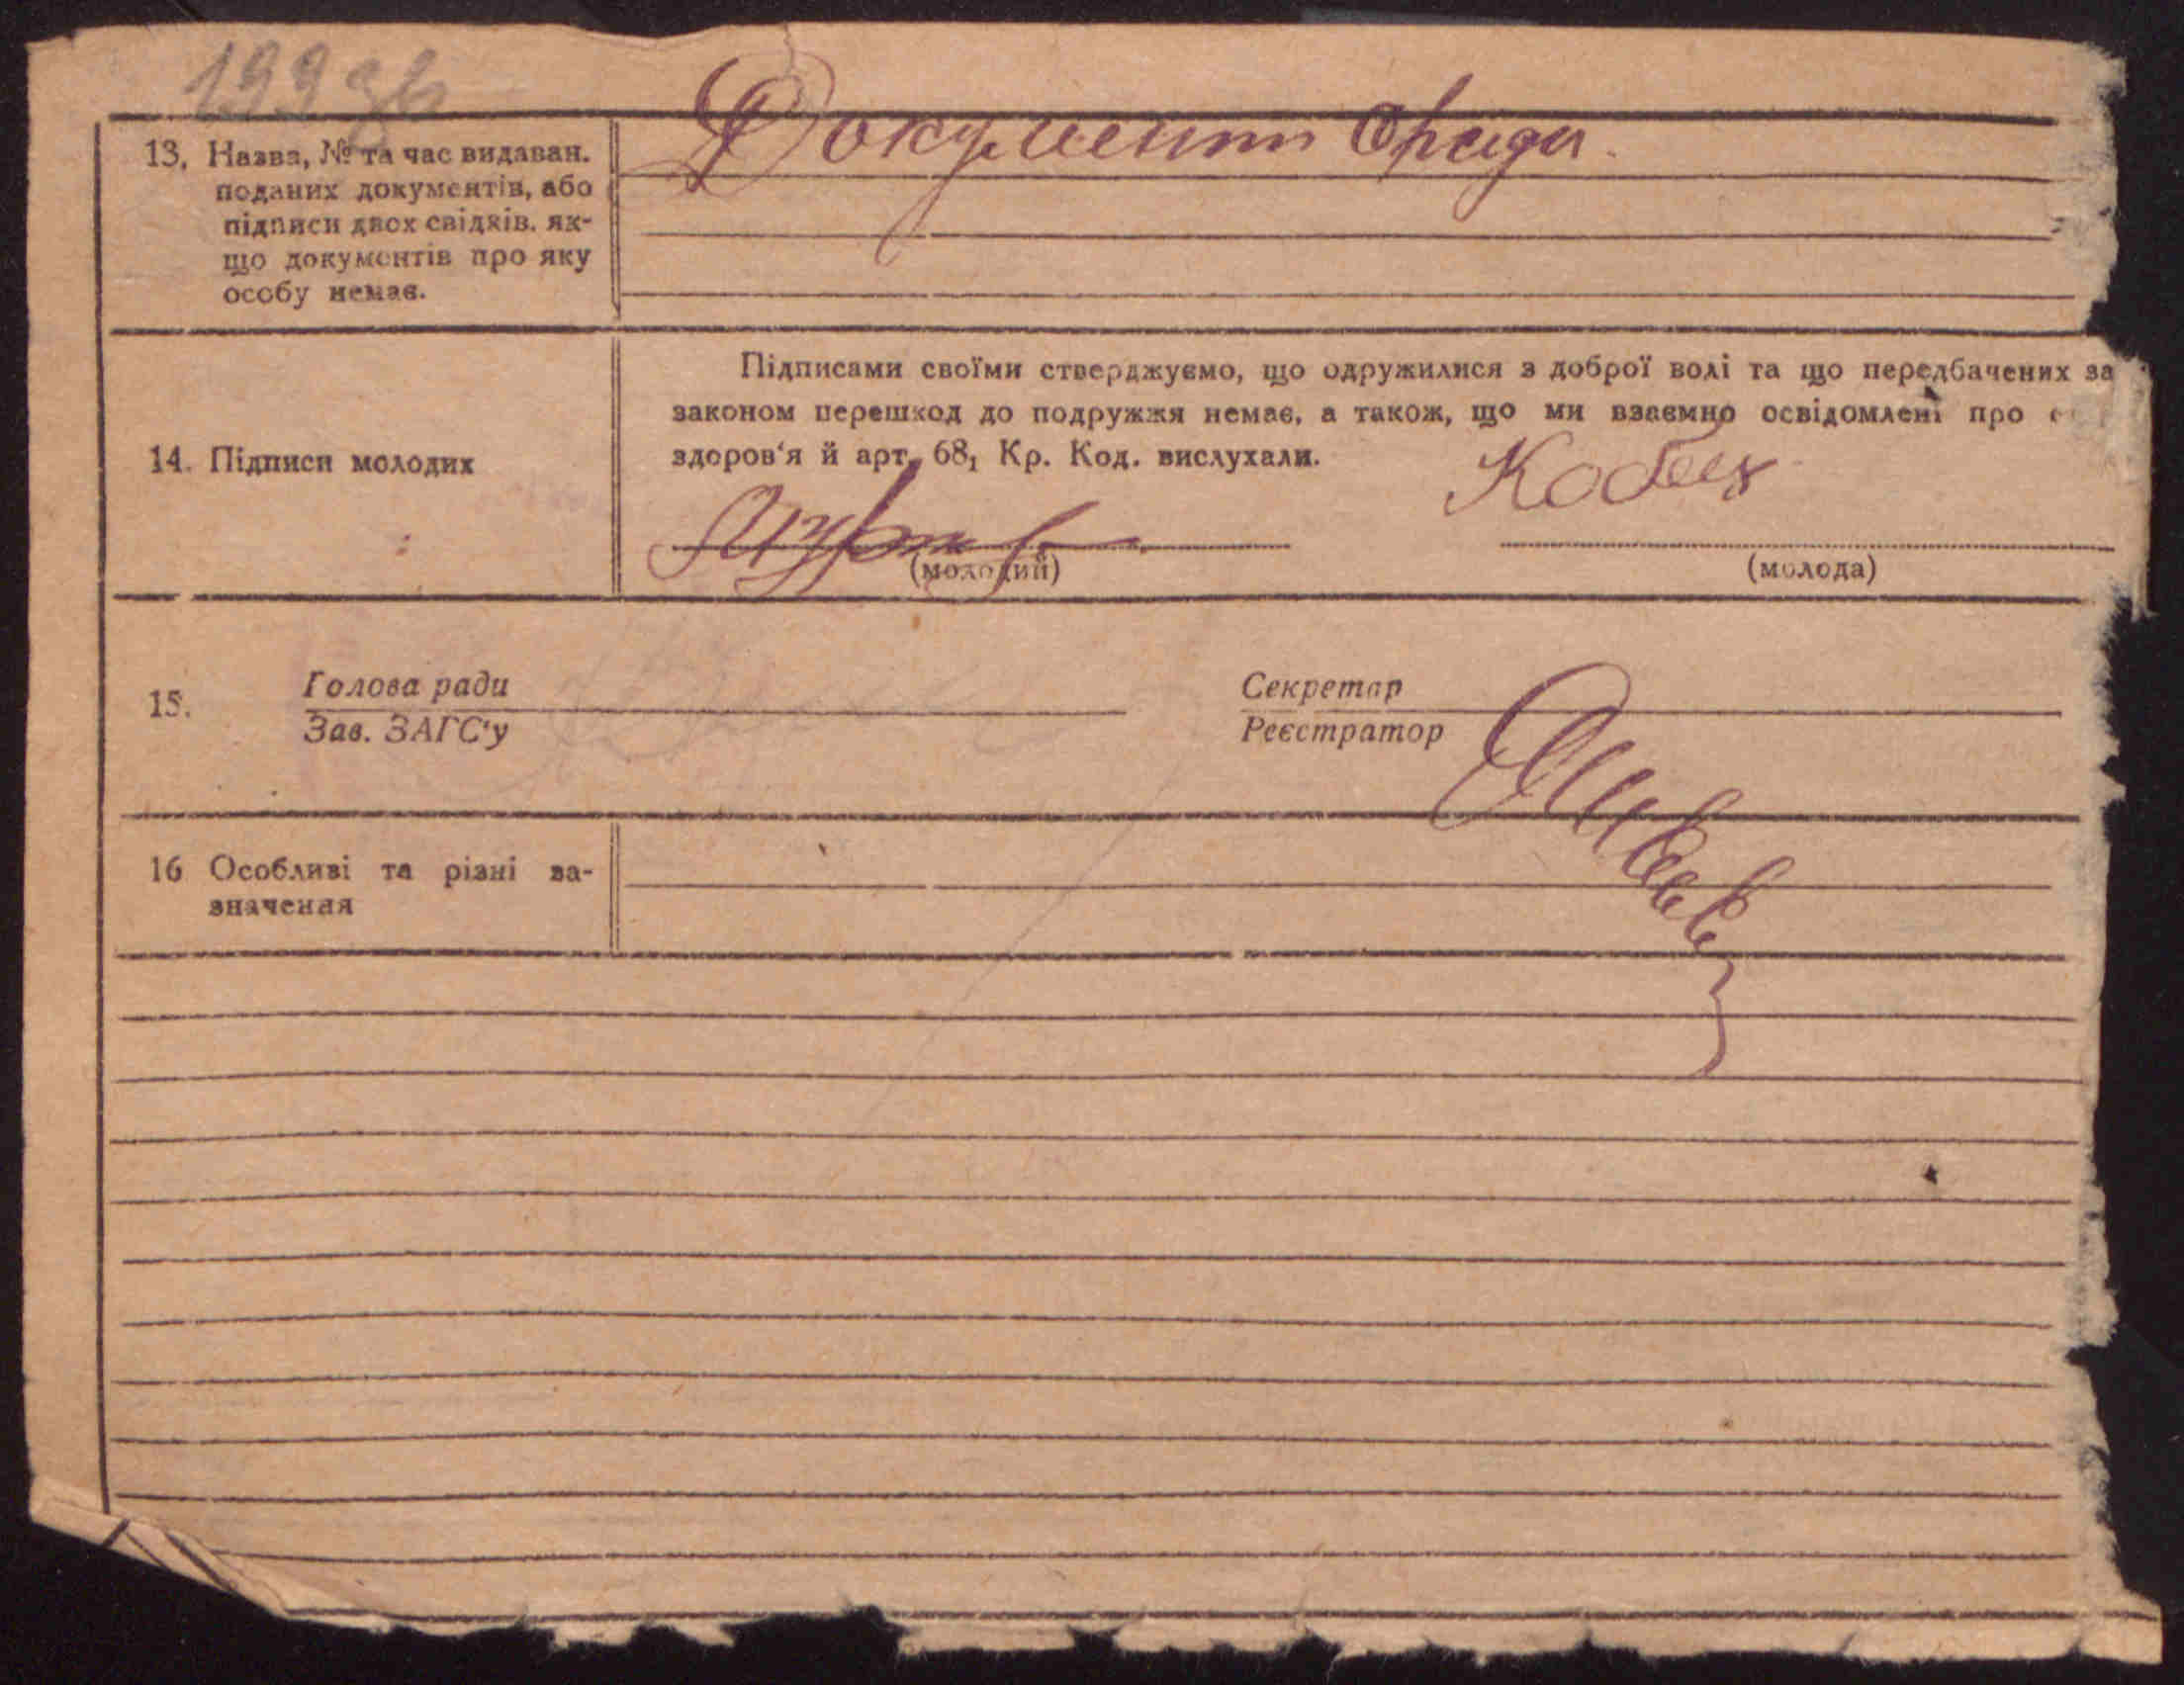 199 зв
13. Назва, № та час видаван.
поданих документів, або
підписи двох свідків, як-
що документів про яку
особу немає.
Документи
Підписами своїми стверджуємо, що одружилися з доброї волі та що передбачених за
законом перешкод до подружжя немає, а також, що ми взаємно освідомлені про
здоров'я й арт. 68₁ Кр. Код. вислухали.
14. Підписи молодих
Кобец
(молодий)
(молода)
15.
Голова ради
Зав. ЗАГС'у
Секретар
Реєстратор
16 Особливі та різні за-
значення